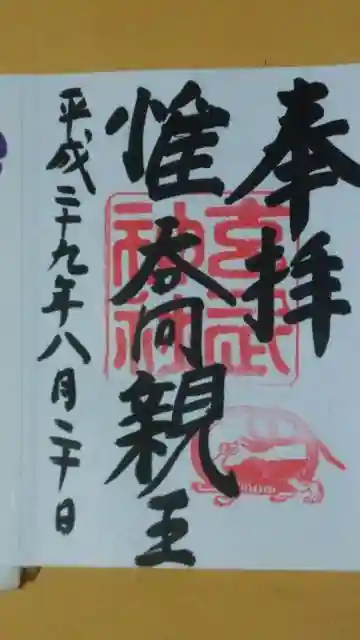 奉拝
惟喬親王
玄武神社
平成二十九年八月二十日